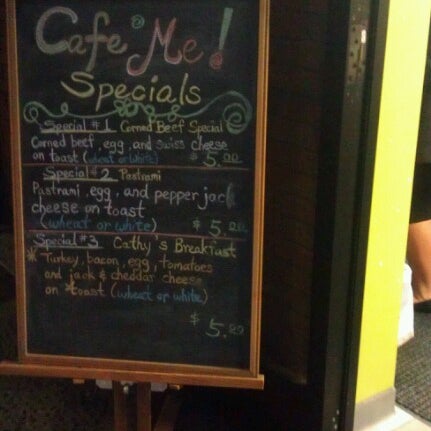 Cafe Me!
Specials
Special #1 Corned Beef Special
Corned beef, egg, and swiss cheese
on toast (wheat or white) $5.00
Special #2 Pastrami
Pastrami, egg, and pepper jack
cheese on toast
(wheat or white) $5.00
Special #3 Cathy's Breakfast
Turkey, bacon, egg, tomatoes
and jack & cheddar cheese
on toast (wheat or white)
$5.00